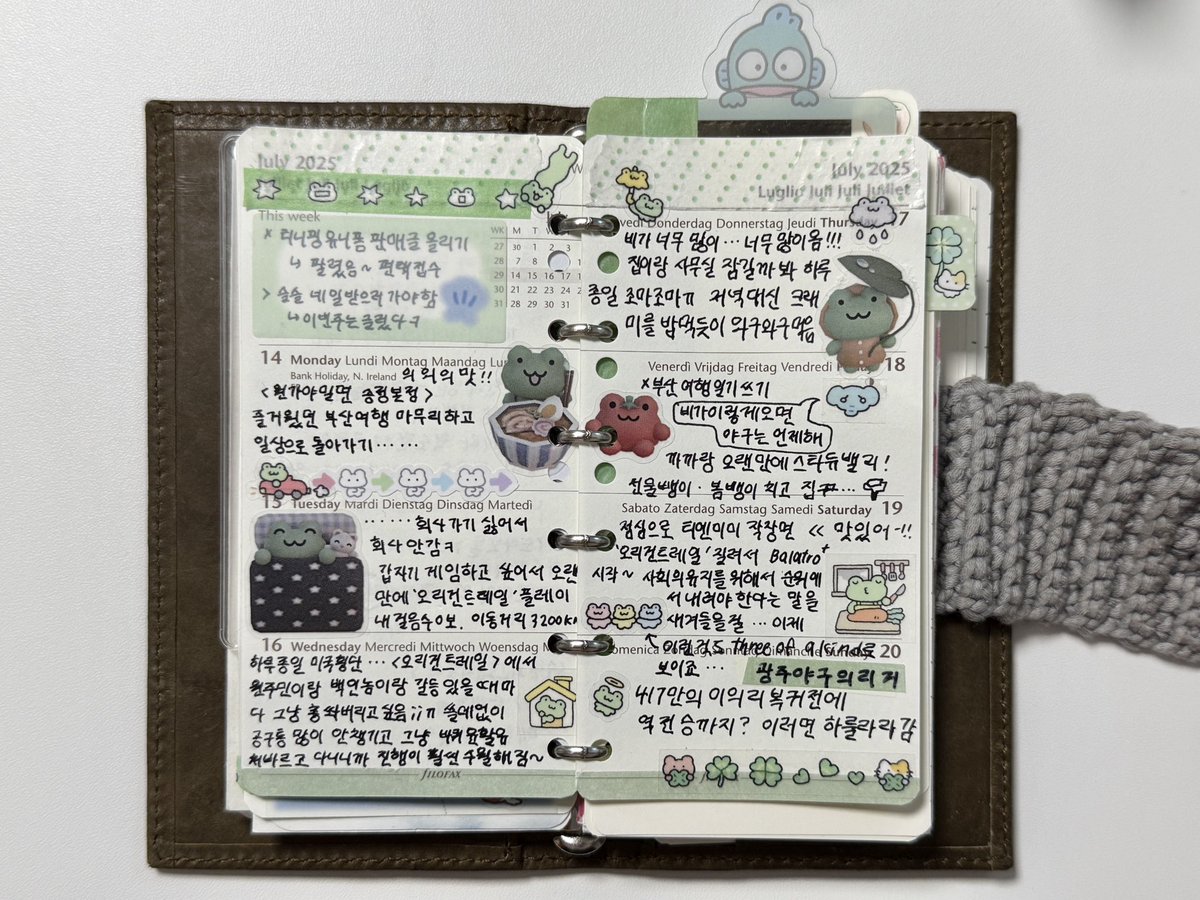 July 2025
This week
* 티니핑유니폼 판매글 올리기
↳ 팔렸음~ 편택접수
> 슬슬 네일받으러 가야함
↳이번주는글렀다ㅋ
WK M T
27 30 1 2 3
28 7 8 9 10
29 14 15 16 17
30 21 22 23 24
31 28 29 30 31
14 Monday Lundi Montag Maandag
Bank Holiday, N. Ireland 의외의 맛!!
<원가야밀면 송정본점>
즐거웠던 부산여행 마무리하고
일상으로 돌아가기……
15 Tuesday Mardi Dienstag Dinsdag Martedì
……… 회사가기 싫어서
회사 안감ㅋ
갑자기 게임하고 싶어서 오랜
만에 '오리건트레일' 플레이
내 걸음수 이동거리 3200km
16 Wednesday Mercredi Mittwoch Woensdag
하루종일 미국횡단… <오리건트레일>에서
원주민이랑 백인놈이랑 갈등 있을때마
다 그냥 총 싸버리고싶음;;ㅠ 쓸데없이
공구통 많이 안챙기고 그냥 바퀴윤활유
처바르고 다니니까 진행이 훨씬 수월해짐~
FILOFAX
July 2025
Luglio Juli Juli Juillet
Donderdag Donnerstag Jeudi Thursday 17
비가 너무 많이… 너무 많이옴!!!
집이랑 사무실 잠길까봐 하루
종일 조마조마ㅠ 저녁대신 크래
미를 밥먹듯이 와구와구먹음
Venerdì Vrijdag Freitag Vendredi 18
*부산여행일기쓰기
비가이렇게오면
야구는 언제해
까까랑 오랜만에스타듀밸리!
선물뱅이·봄뱅이 희고 집ㅠ…
Sabato Zaterdag Samstag Samedi Saturday 19
점심으로 티엔미미 작장면 << 맛있어-!!
'오리건트레일' 질려서 Balatro+
시작~ 사회의유지를위해서 순위에
서 내려야한다는 말을
새겨들을걸 … 이제
↖ 이런것도 three of a kind로
보이죠 …
20
광주야구의리거
417만의 이의리 복귀전에
역전승까지? 이러면 하룰라라감